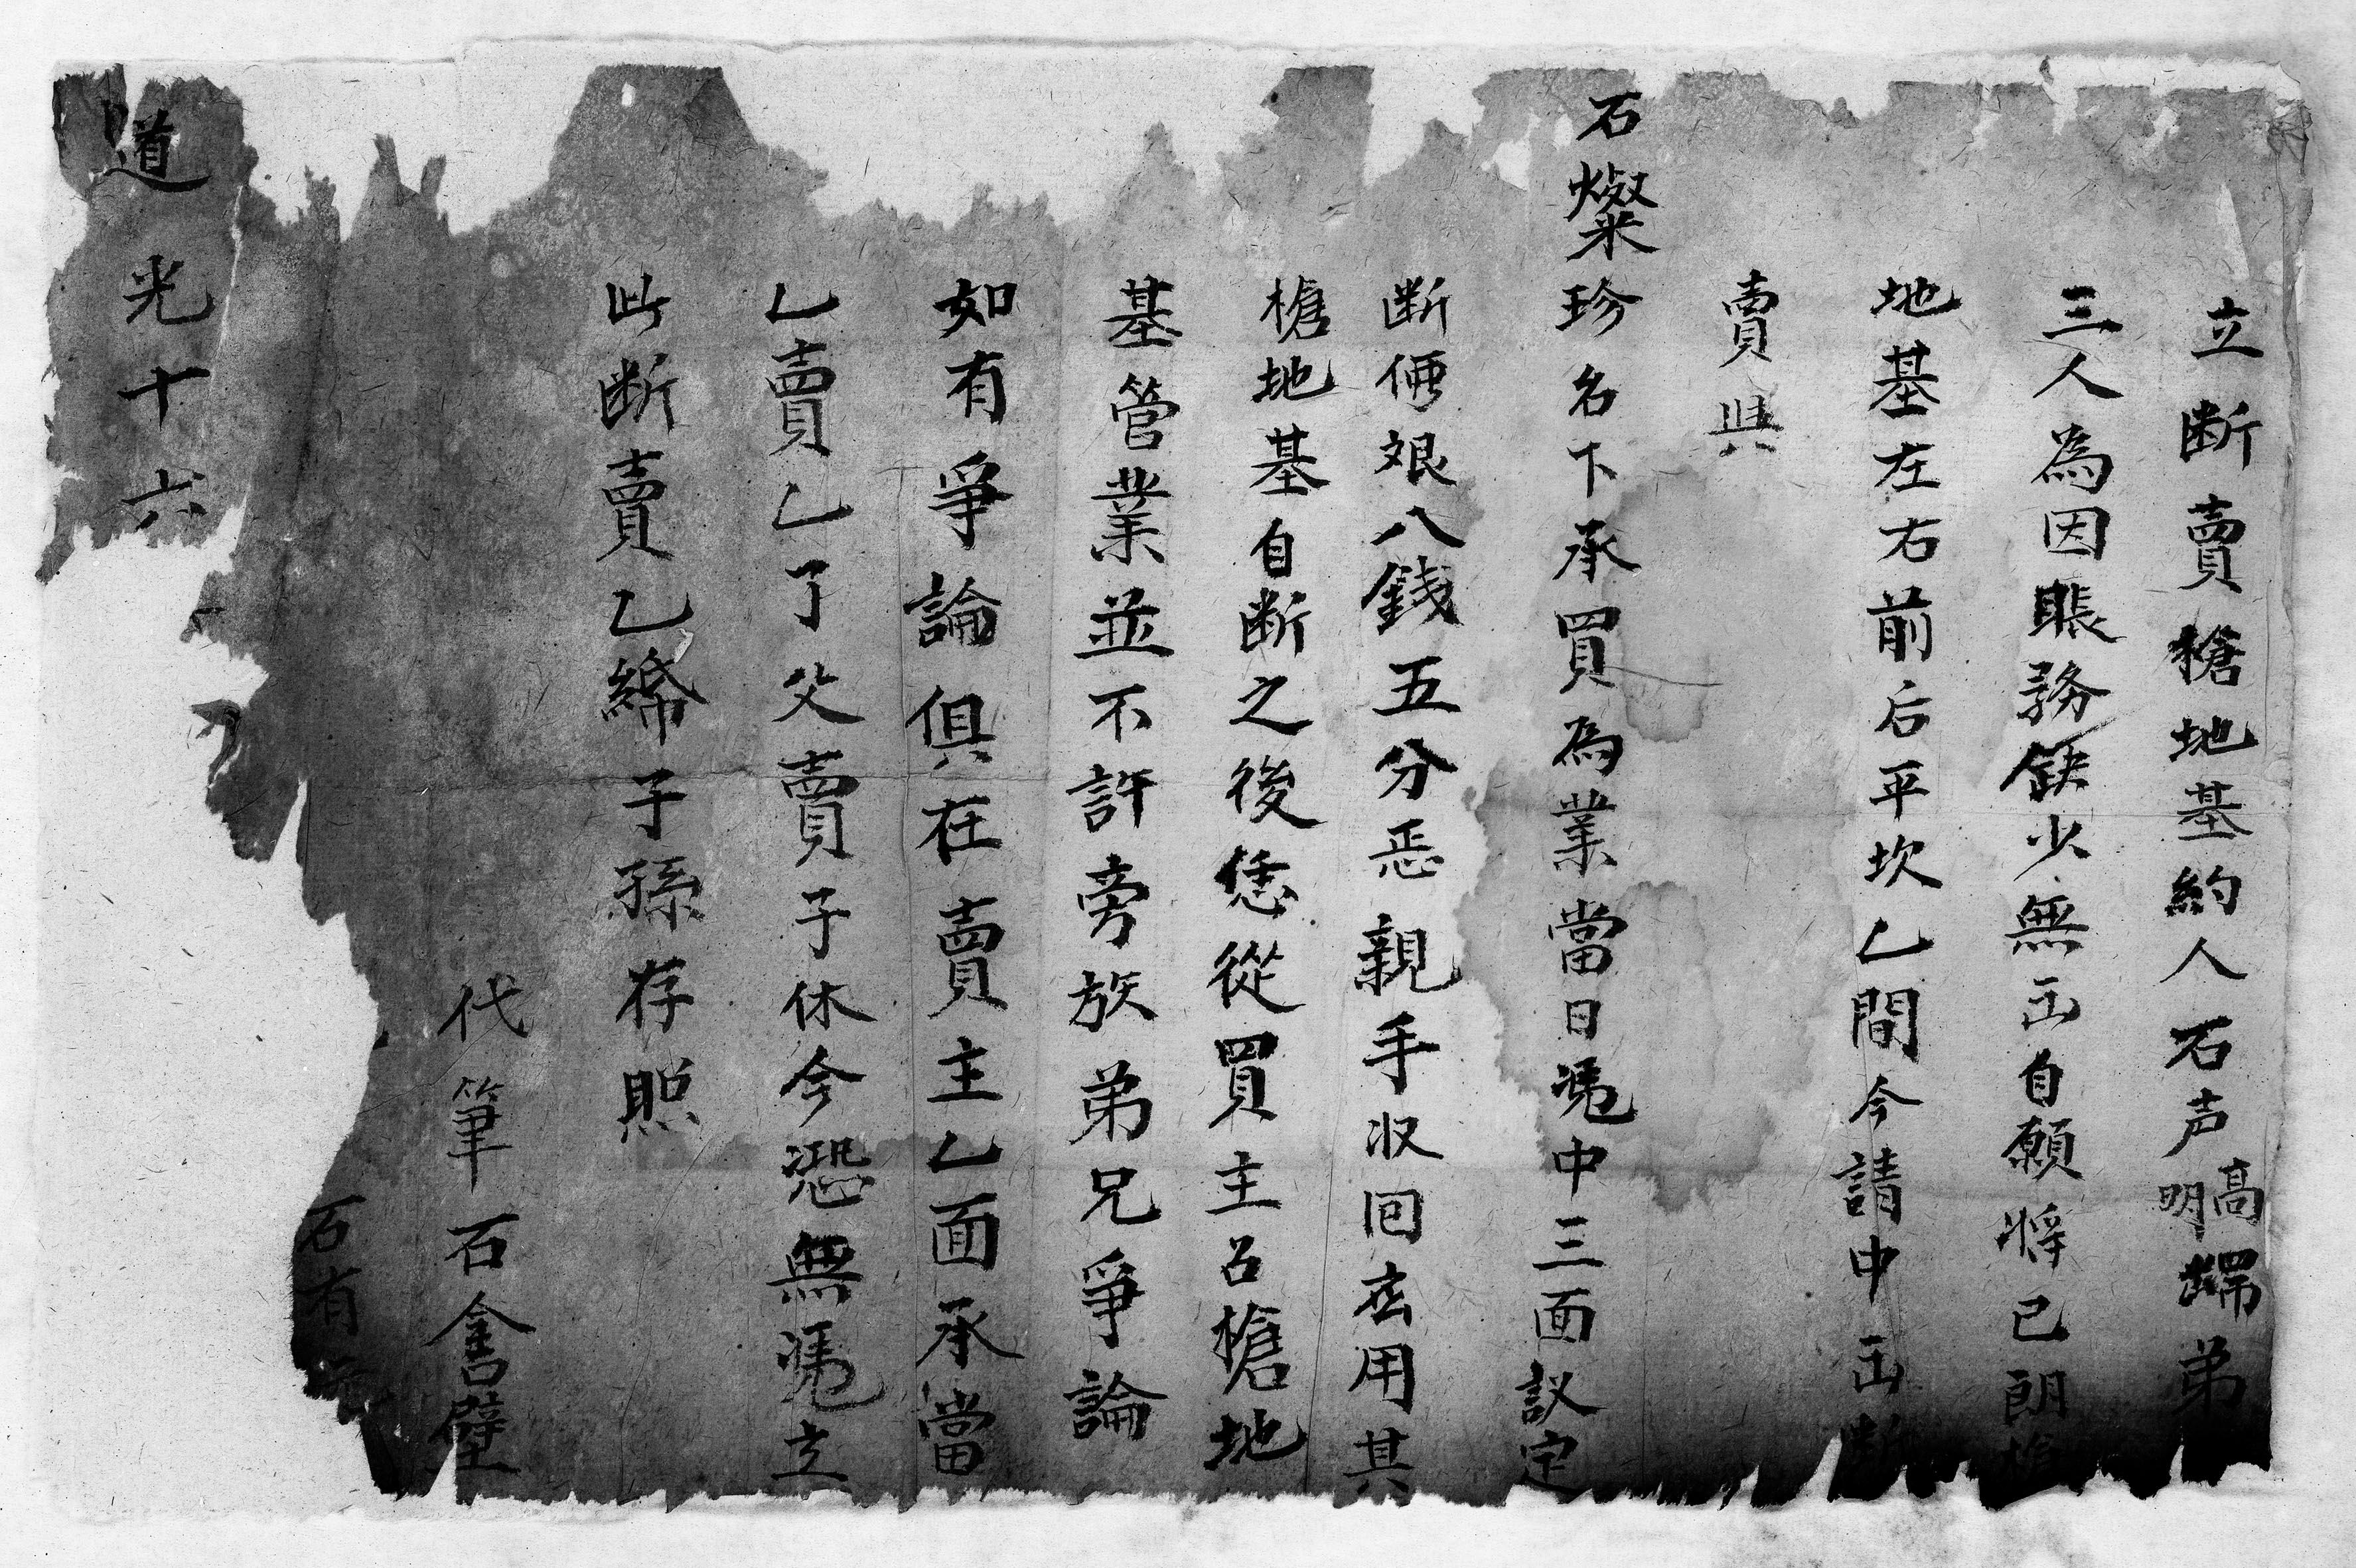 立断賣槍地基約人石声高明踹弟
三人為因賬務缺少無㞢自願將已朗槍
地基左右前后平坎乙間今請中㞢断
賣與
石燦珍名下承買為業當日凴中三面議定
断価艮八錢五分㤙親手收回应用其
槍地基自断之後恁從買主召槍地
基管業並不許旁族弟兄爭論
如有爭論俱在賣主乙面承當
乙賣乙了父賣子休今恐無凴立
此断賣乙紙子孫存照
代筆石含璧
石有
道光十六